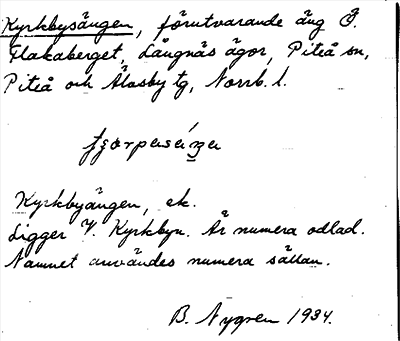 Kyrkbysängen, förutvarande äng Ö.
Flakaberget, Långnäs ägor, Piteå sn,
Piteå och Älvsby tg, Norrb. l.
Kyrkbyängen, ek.
Ligger V. Kyrkbyn. Är numera odlad.
Namnet användes numera sällan.
B. Nygren 1934.